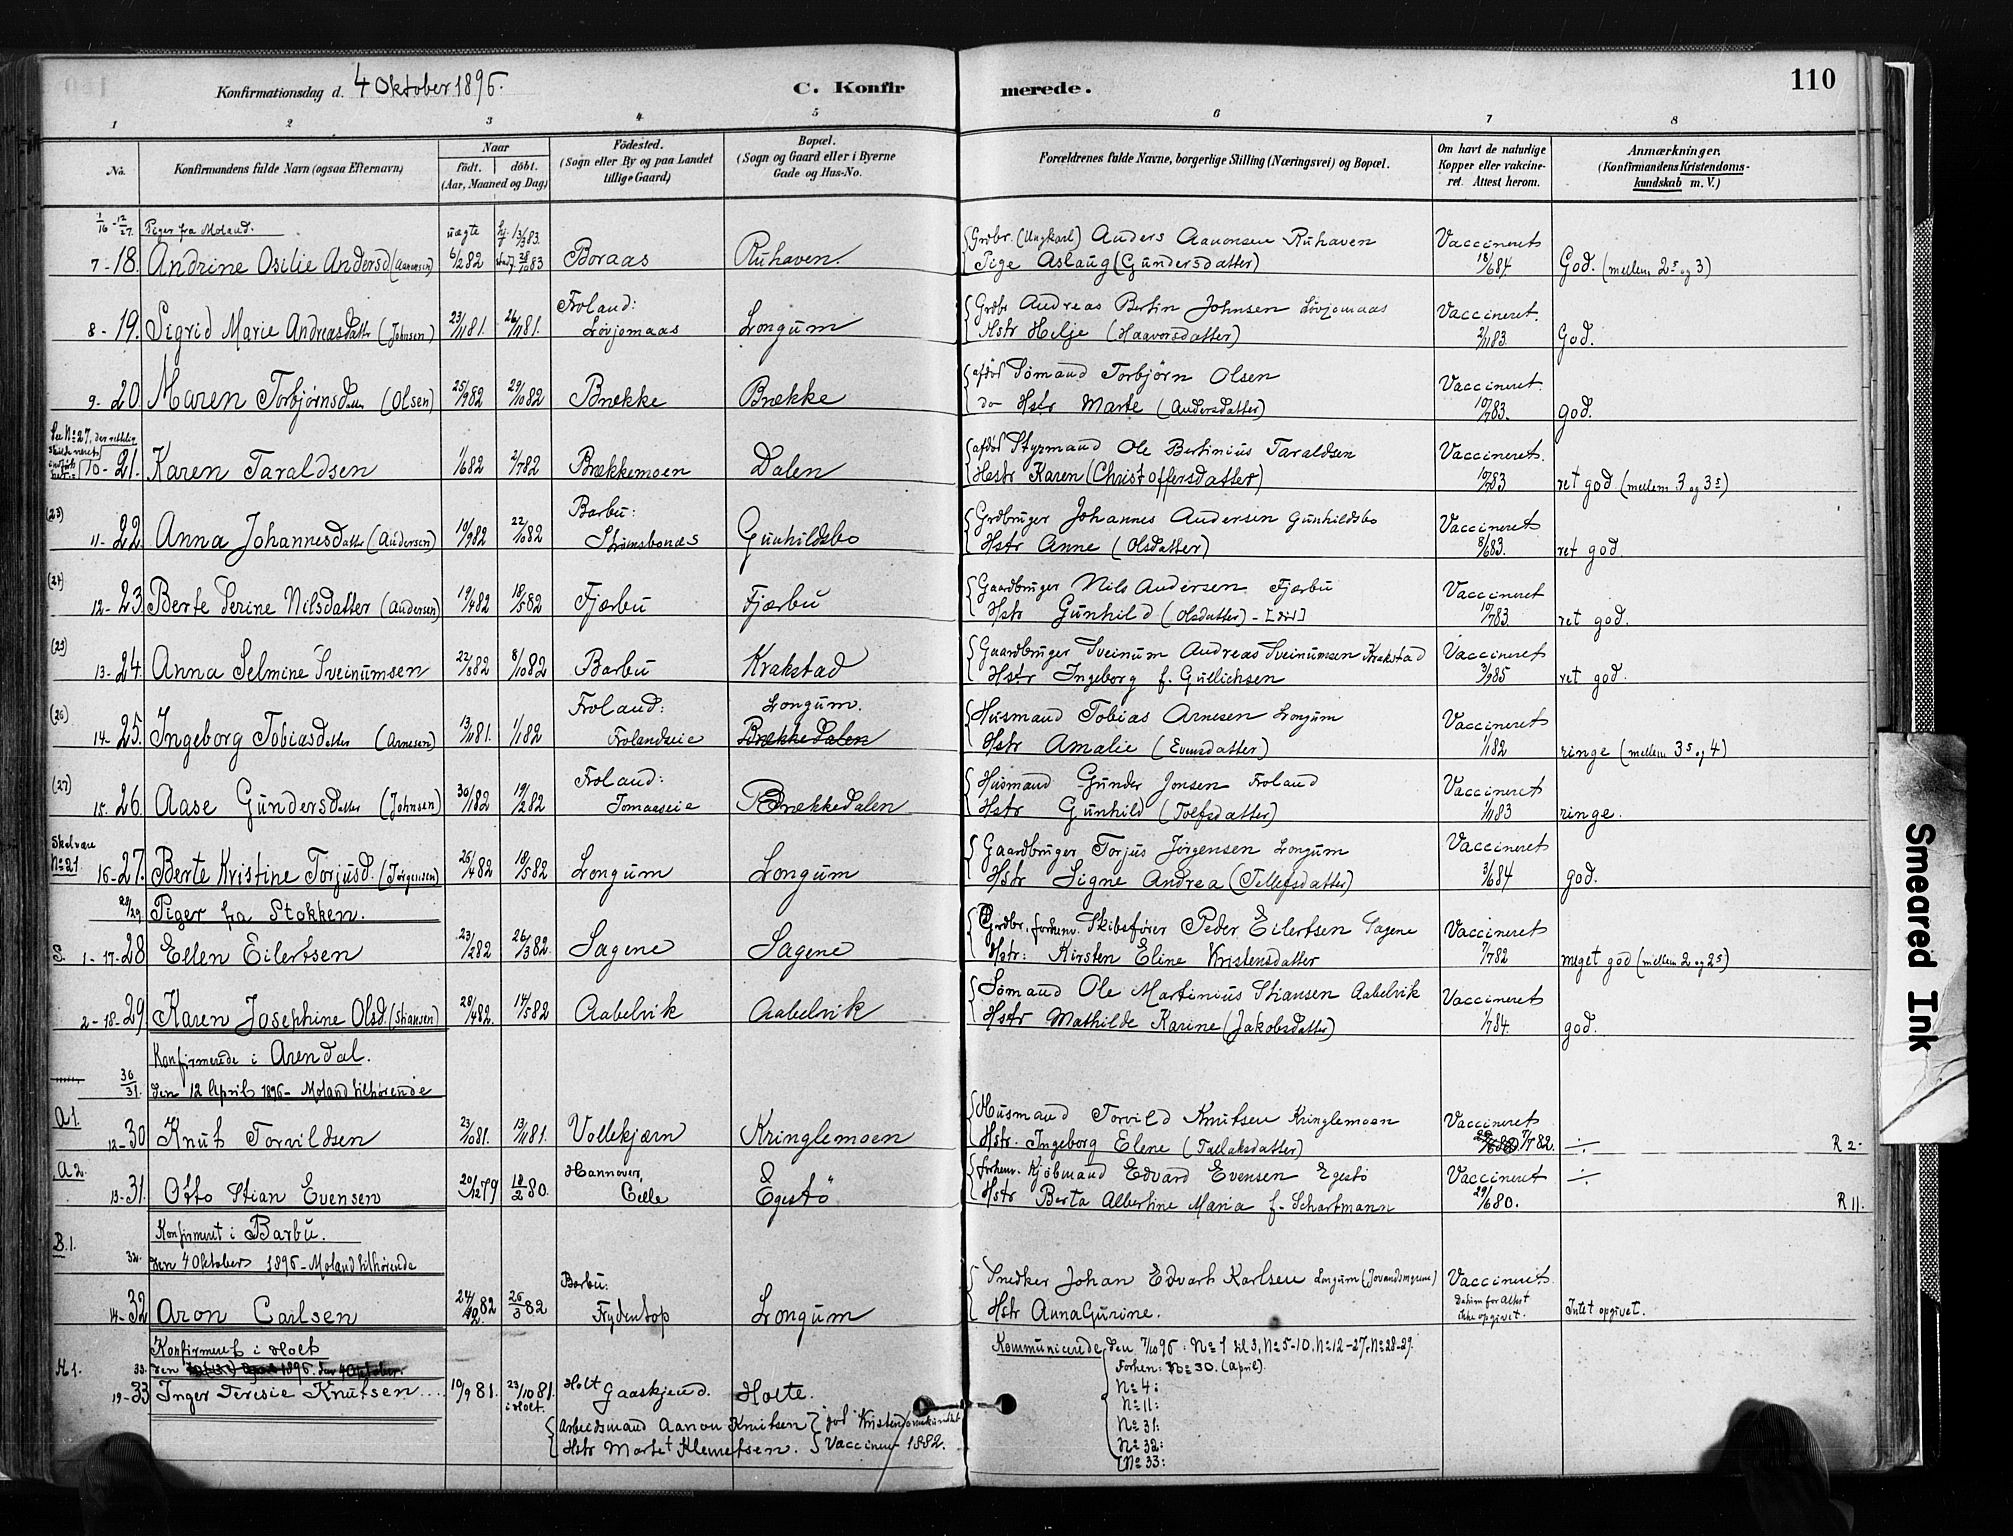 Konfirmationsdag d. 4 Oktober 1896. C. Konfirmerede. 110
1 2 3 4 5 6 7 8
No. Konfirmandens fulde Navn (ogsaa Efternavn) Naar født. døbt. (Aar, Maaned og Dag) Fødested. (Sogn eller By og paa Landet tillige Gaard) Bopæl. (Sogn og Gaard eller i Byerne Gade og Hus-No. Forældrenes fulde Navne, borgerlige Stilling (Næringsvei) og Bopæl. Om havt de naturlige Kopper eller vakcineret. Attest herom. Anmærkninger. (Konfirmandens Kristendomskundskab m. V.)
1/16 - 12/27. Piger fra Moland. uægte 13/3 83. Grdbr. (Ungkarl) Anders Aanonsen Ruhaven Vaccineret
7- 18. Andrine Osilie Andersd (Aanonsen) 6/12 82 28/10 83 Boraas Ruhaven. Pige Aslaug (Gundersdatter) 18/6 84 God. (mellem 2⁵ og 3)
Froland: Grdbr Andreas Bertin Johnsen Lövjomaas Vaccineret.
8- 19. Sigrid Marie Andreasdatter (Johnsen) 23/11 81. 26/11 81. Lövjomaas Longum Hstr Helje (Haavorsdatter) 2/11 83. God.
afdöd Sömand Torbjörn Olsen Vaccineret.
9- 20 Maren Torbjørnsdatter (Olsen) 25/9 82 29/10 82 Brække Brække do Hstr Marte (Andersdatter) 10/7 83. god.
Se No 27.
afdöd Styrmand Ole Bertinius Taraldsen Vaccineret.
10- 21. Karen Taraldsen 1/6 82 2/7 82 Brækkemoen Dalen Hstr Karen (Christoffersdatter) 10/7 83 ret god (mellem 3 og 3⁵)
(23) Barbu: Grdbruger Johannes Andersen Gunhildsbo Vaccineret
11- 22. Anna Johannesdatter (Andersen) 10/9 82 22/10 82 Strömsbonæs Gunhildsbo Hstr Anne (Olsdatter) 8/6 83. ret god
(24) Gaardbruger Nils Andersen Fjærbu Vaccineret
12- 23. Berte Serine Nilsdatter (Andersen) 19/4 82 18/5 82 Fjærbu Fjærbu Hstr Gunhild (Olsdatter) - [död] 10/7 83. ret god.
(25) Gaardbruger Sveinum Andreas Sveinumsen Krakstad Vaccineret
13- 24. Anna Selmine Sveinumsen 22/8 82 8/10 82 Barbu Krakstad Hstr Ingeborg f. Gullichsen 3/9 85 ret god.
(26) Froland: Longum. Husmand Tobias Arnesen Longum Vaccineret
14- 25. Ingeborg Tobiasdatter (Arnesen) 13/11 81. 1/1 82 Frolandseie Brækkedalen Hstr Amalie (Evensdatter) 1/11 82 ringe (mellem 3⁵ og 4)
(27) Froland: Husmand Gunder Jonsen Froland Vaccineret
15. 26. Aase Gundersdatter (Johnsen) 30/1 82 19/2 82 Jomaaseie Brækkedalen Hstr Gunhild (Tolfsdatter) 1/11 83 ringe.
Skal være No 21. Gaardbruger Torjus Jørgensen Longum Vaccineret
16- 27. Berte Kristine Torjusd. (Jørgensen) 25/4 82 18/5 82 Longum Longum Hstr Signe Andrea (Tellefsdatter) 3/6 84 god.
28/29 Piger fra Stokken. Grdbr. forhenv. Skibsfører Peder Eilertsen Sagene Vaccineret
S. 1- 17- 28 Ellen Eilertsen 23/2 82 26/3 82. Sagene Sagene Hstr: Kirsten Eline Kristensdatter 7/7 82 meget god (mellem 2 og 2⁵)
Sömand Ole Martinius Stiansen Aabelvik Vaccineret
2- 18- 29 Karen Josephine Olsd. (Stiansen) 28/4 82. 14/5 82 Aabelvik Aabelvik Hstr Mathilde Karine (Jakobsdatter) 1/7 84. god.
Konfirmerede i Arendal.
30/31. den 12 April 1896 - Moland tilhørende
A1. Husmand Torvild Knutsen Kringlemoen Vaccineret
12- 30 Knut Torvildsen 23/10 81. 13/11 81. Vollekjærn Kringlemoen Hstr. Ingeborg Elene (Tallaksdatter) 7/7 82. ÷ R 2-
A2. Hannover, forhenv. Kjøbmand Edvard Evensen Egestö Vaccineret ÷
13- 31. Otto Stian Evensen 20/12 79 18/2 80. Celle Egestö Hstr Berta Albertine Maria f. Schartmann 29/6 80. R 11.
Konfirmeret i Barbu.
B.1. 32. den 4 Oktober 1896 - Moland tilhørende
Barbu: Snedker Johan Edvart Karlsen Longum (Jovandsmyrene) Vaccineret.
14- 32 Aron Carlsen 24/12 82 26/3 82 Frydentop Longum Hstr Anna Gurine. Datum for Attest ikke opgivet. Intet opgivet.
Konfirmeret i Holt Kommunicerede den 7/10 96: No 1 til 3, No 5-10. No 12-27. No 28-29.
H1. 33. den 1896. den 4 Oktober Forhen: No 30. (April).
19- 33 Inger Teresie Knutsen... 10/9 81. 23/10 81. i Holt. Holt Gaaskjend. Holte. No 4:
No 11:
Arbeidsmand Aanon Knutsen god Kristendomskundskab No 31:
Hstr Martet Klemetsen. Vaccinem 1882. No 32:
No 33:
Smeared Ink